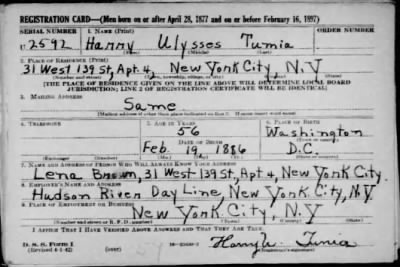 REGISTRATION CARD—(Men born on or after April 28, 1877 and on or before February 16, 1897)
SERIAL NUMBER 1. NAME (Print) ORDER NUMBER
U 2592 Harry Ulysses Tunia
(First) (Middle) (Last)
2. PLACE OF RESIDENCE (Print)
31 West 139 St, Apt. 4, New York City, N.Y
(Number and street) (Town, township, village, or city) (County) (State)
[THE PLACE OF RESIDENCE GIVEN ON THE LINE ABOVE WILL DETERMINE LOCAL BOARD
JURISDICTION; LINE 2 OF REGISTRATION CERTIFICATE WILL BE IDENTICAL]
3. MAILING ADDRESS
Same
[Mailing address if other than place indicated on line 2. If same insert word same]
4. TELEPHONE 5. AGE IN YEARS 6. PLACE OF BIRTH
56 Washington
DATE OF BIRTH (Town or county)
Feb. 19 1886 D.C.
(Exchange) (Number) (Mo.) (Day) (Yr.) (State or country)
7. NAME AND ADDRESS OF PERSON WHO WILL ALWAYS KNOW YOUR ADDRESS
Lena Brown, 31 West 139 St, Apt 4, New York City.
8. EMPLOYER'S NAME AND ADDRESS
Hudson River Day Line, New York City, N.Y.
9. PLACE OF EMPLOYMENT OR BUSINESS
New York City, N.Y
(Number and street or R. F. D. number) (Town) (County) (State)
I AFFIRM THAT I HAVE VERIFIED ABOVE ANSWERS AND THAT THEY ARE TRUE.
D. S. S. Form 1
(Revised 4-1-42) (over) Harry U. Tunia